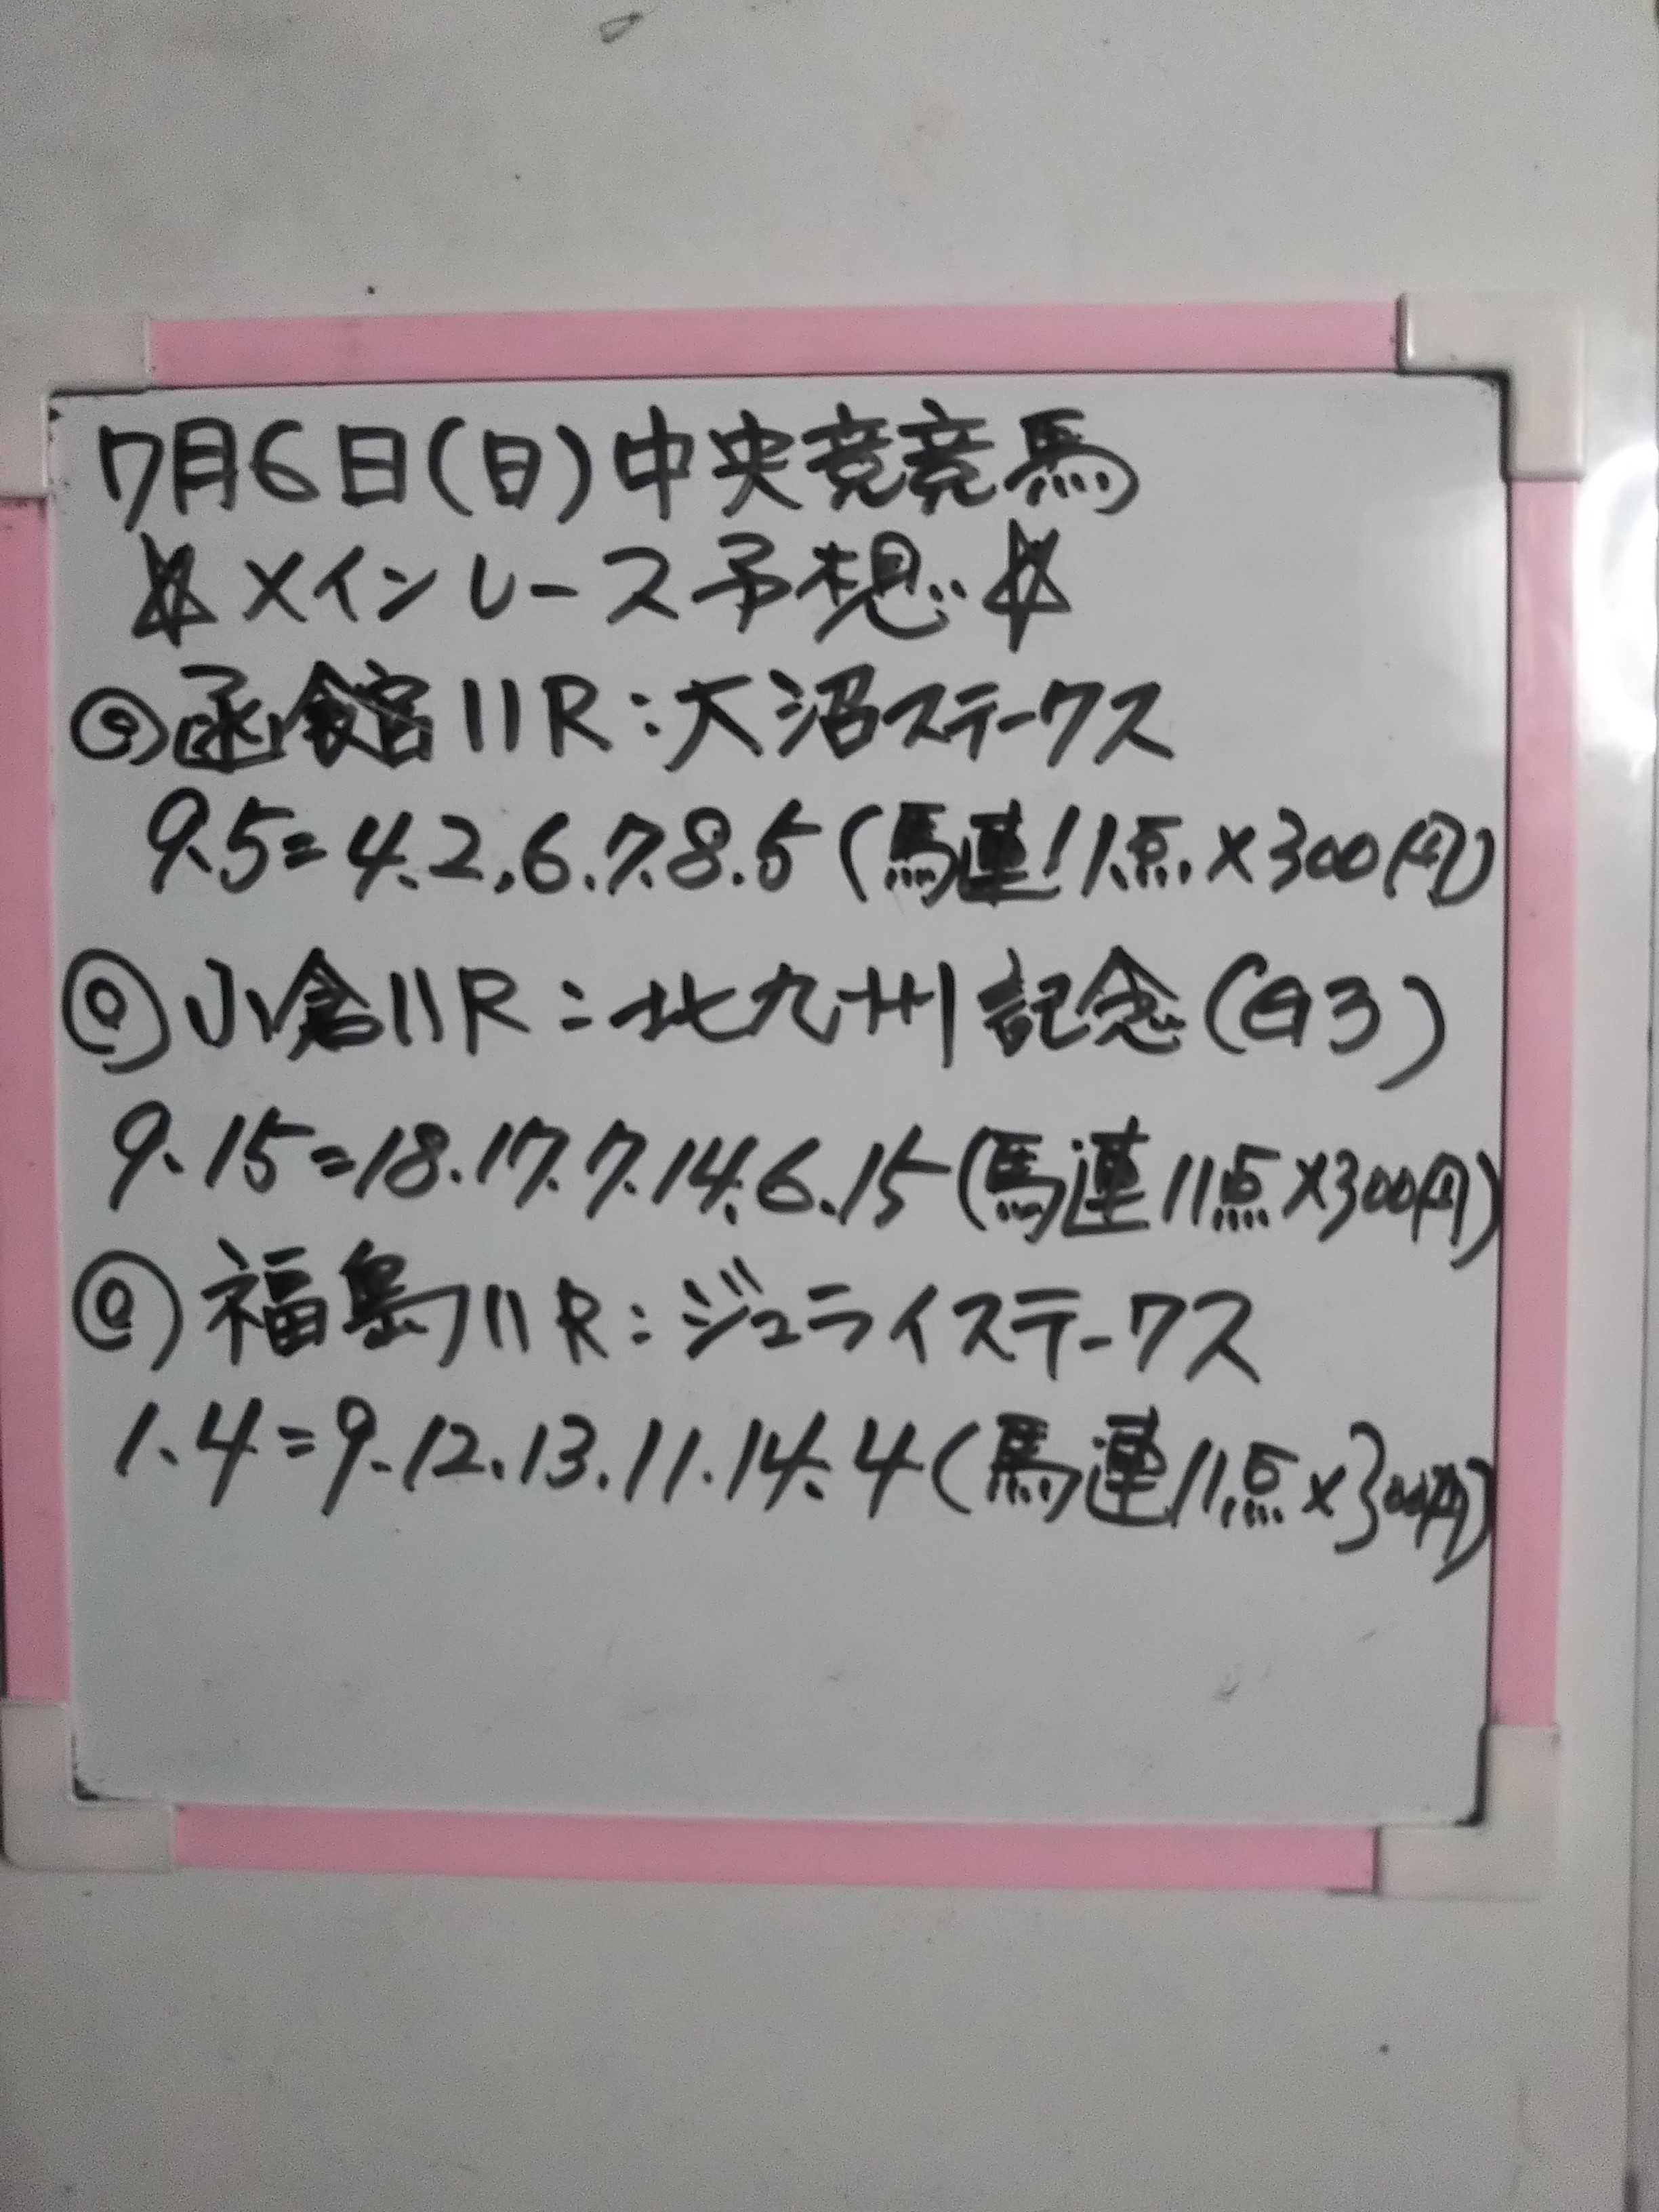 7月6日(日)中央竞竞馬
☆メインレース予想☆
◎函館11R:大沼ステークス
9.5=4.2.6.7.8.5(馬連11点×300円)
◎小倉11R:北九州記念(G3)
9.15=18.17.7.14.6.15(馬連11点×300円)
◎福島11R:ジュライステークス
1.4=9.12.13.11.14.4(馬連11点×300円)